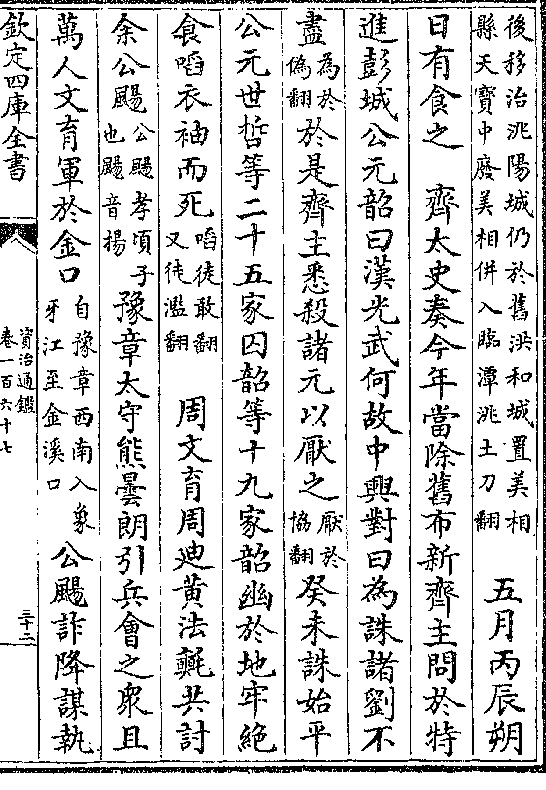 後移治洮陽城仍於舊洪和城置美相
縣天寶中廢美相併入臨潭洮土刀翻
五月丙辰朔
日有食之　齊太史奏今年當除舊布新齊主問於特
進彭城公元韶曰漢光武何故中興對曰為誅諸劉不
盡
為於
偽翻
於是齊主悉殺諸元以厭之
厭於
協翻
癸未誅始平
公元世哲等二十五家囚韶等十九家韶幽於地牢絶
食㗖衣袖而死
㗖徒敢翻
又徒濫翻
周文育周迪黄法𣰰共討
余公颺
公颺孝頃子
也颺音揚
豫章太守熊曇朗引兵會之衆且
萬人文育軍於金口
自豫章西南入象
牙江至金溪口
公颺詐降謀執
欽定四庫全書
資治通鑑
卷一百六十七
三十二